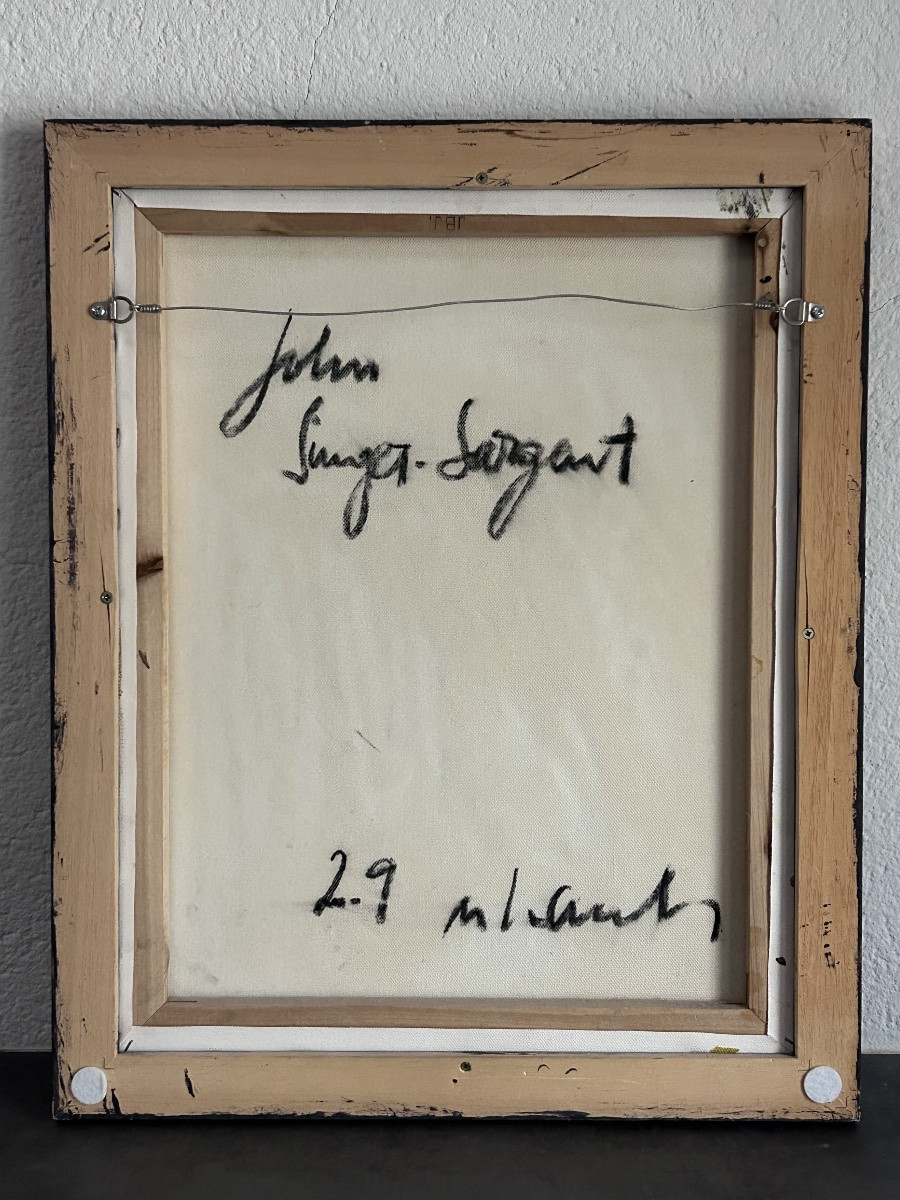 John
Singer-Sargent
2.9